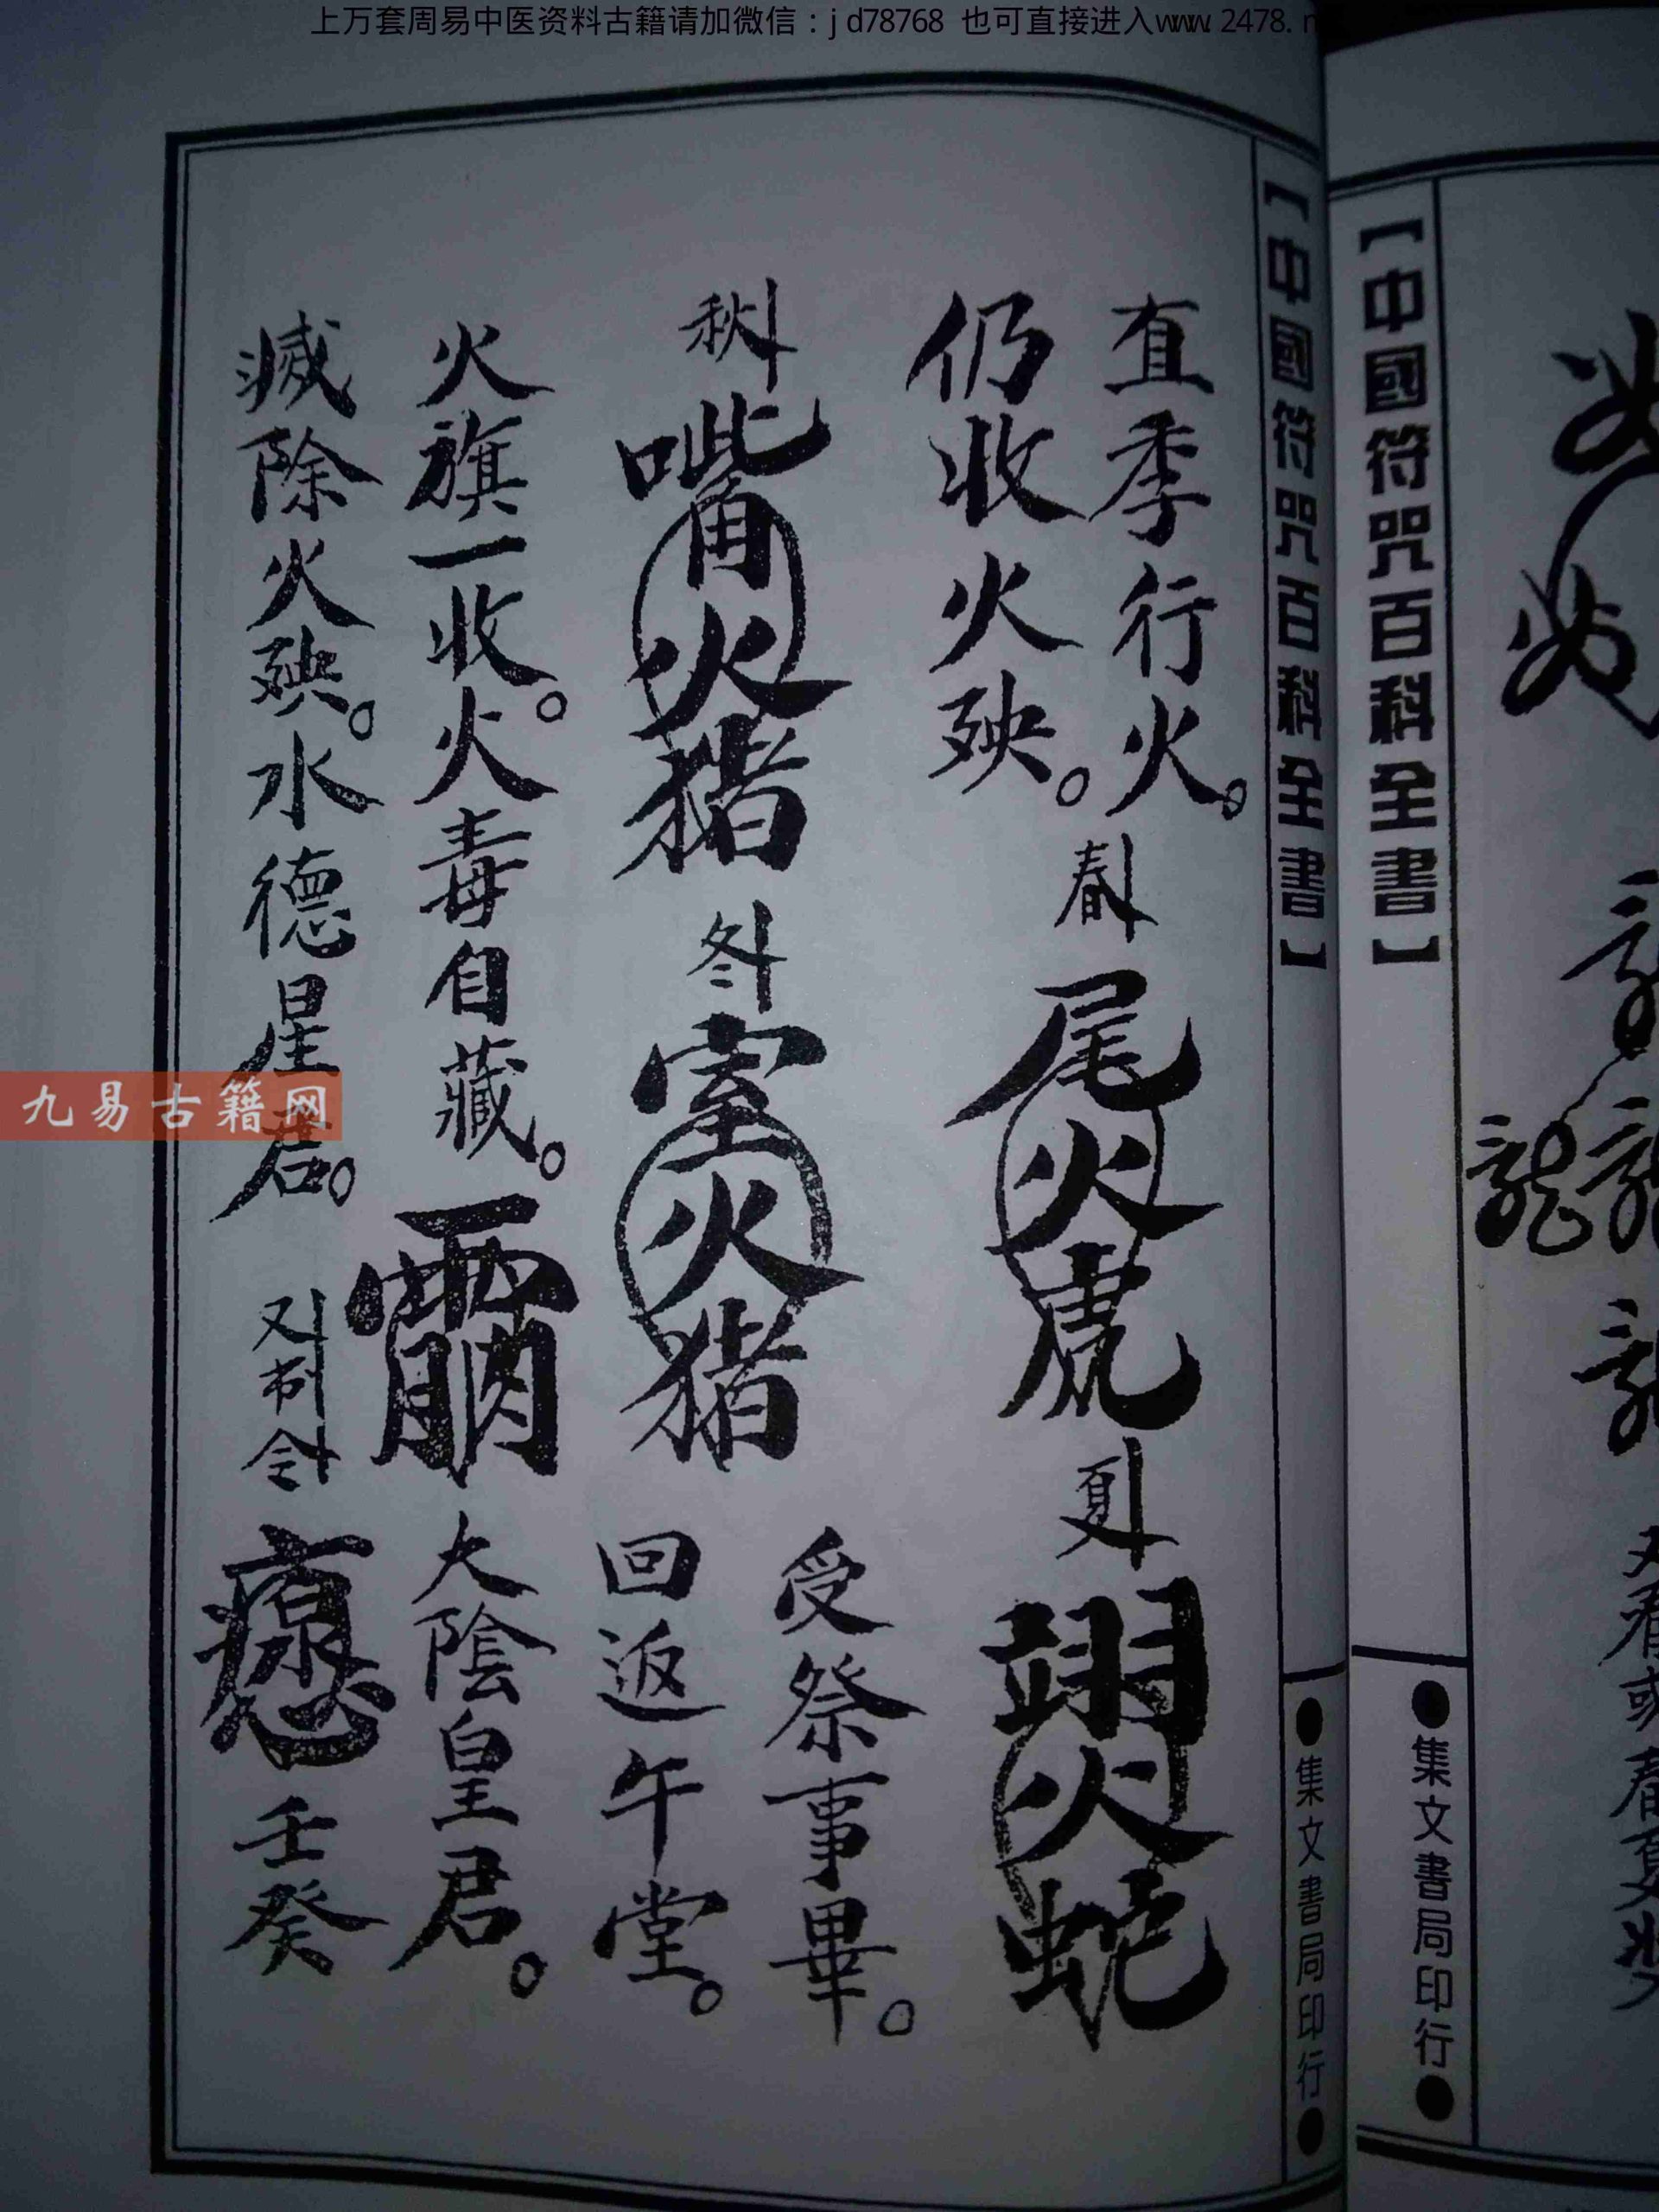 上万套周易中医资料古籍请加微信：jd78768 也可直接进入www.2478.
【中國符咒百科全書】
●集文書局印行●
【中國符咒百科全書】
●集文書局印行●
直季行火。
仍收火殃。
春 尾火虎 夏 翊火蛇
秋 嘴火猪 冬 室火猪
受祭事畢。
回返午堂。
火旗一收。火毒自藏。
大陰皇君。
滅除火殃。水德星君。
又 令
壬癸
九易古籍网